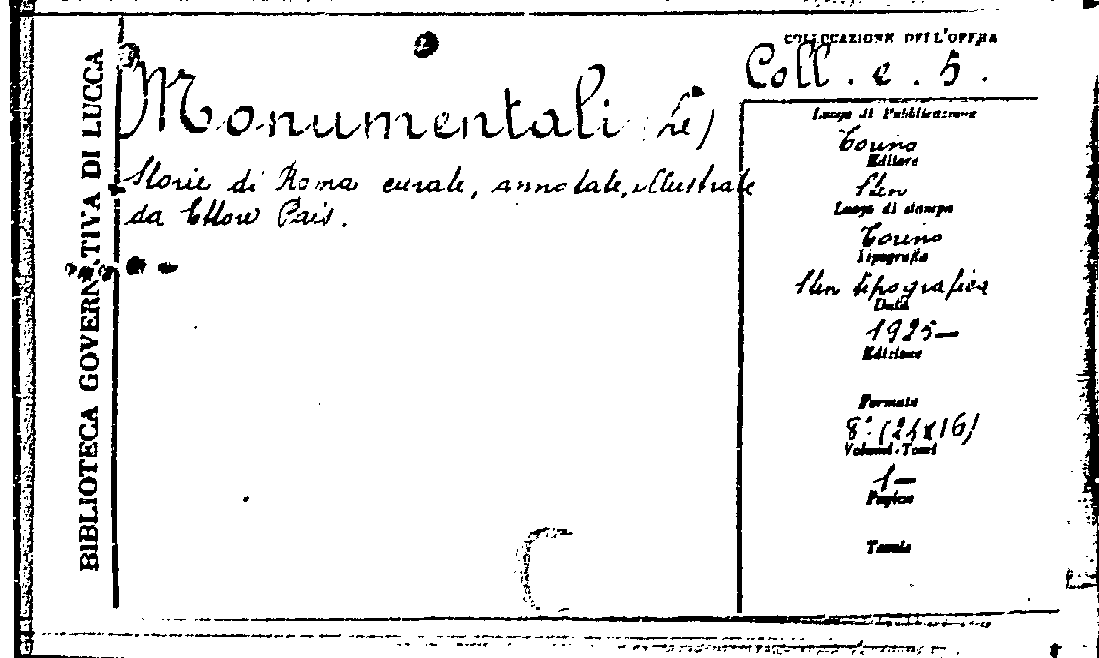 BIBLIOTECA GOVERNATIVA DI LUCCA
COLLOCAZIONE DELL'OPERA
Coll. e. 5.
Monumentali (Le)
Storie di Roma curate, annotate, illustrate
da Ettore Pais.
Luogo di Pubblicazione
Torino
Editore
Sten
Luogo di stampa
Torino
Tipografia
Sten tipografica
Data
1925-
Edizione
Formato
8° (24x16)
Volumi-Tomi
1-
Pagine
Tavole